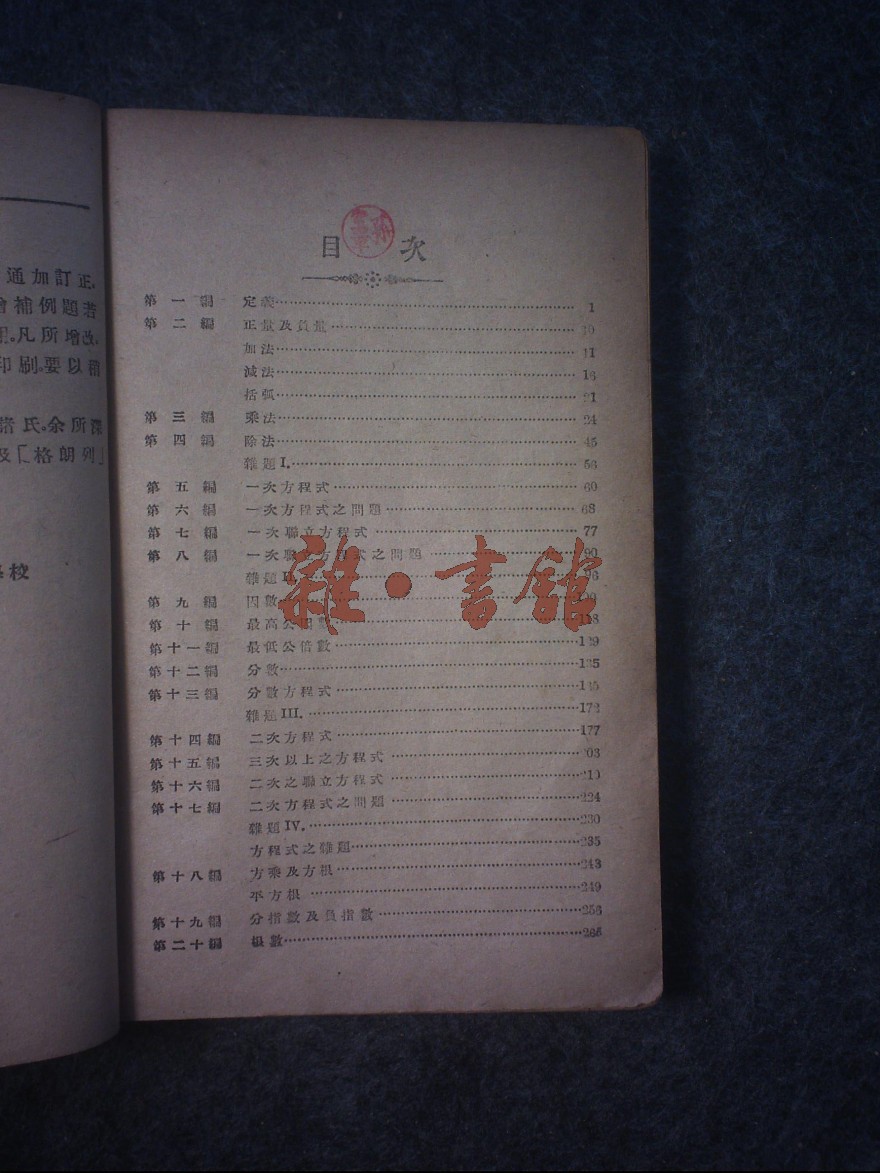 通加訂正,
補例題若
凡所增改,
印刷。要以稍
諸氏。余所深
及「格朗列」
校
目次
第一編 定義 1
第二編 正量及負量
加法 11
減法 16
括弧
第三編 乘法 24
第四編 除法 45
雜題I. 56
第五編 一次方程式 60
第六編 一次方程式之問題 68
第七編 一次聯立方程式 77
第八編 一次聯立方程式之問題
雜題II.
第九編 因數
第十編 最高公因數 118
第十一編 最低公倍數
第十二編 分數
第十三編 分數方程式
雜題III. 172
第十四編 二次方程式 177
第十五編 三次以上之方程式 203
第十六編 二次之聯立方程式
第十七編 二次方程式之問題 224
雜題IV. 230
方程式之雜題 235
第十八編 方乘及方根 243
平方根 249
第十九編 分指數及負指數 256
第二十編 根數 265
雜·書館